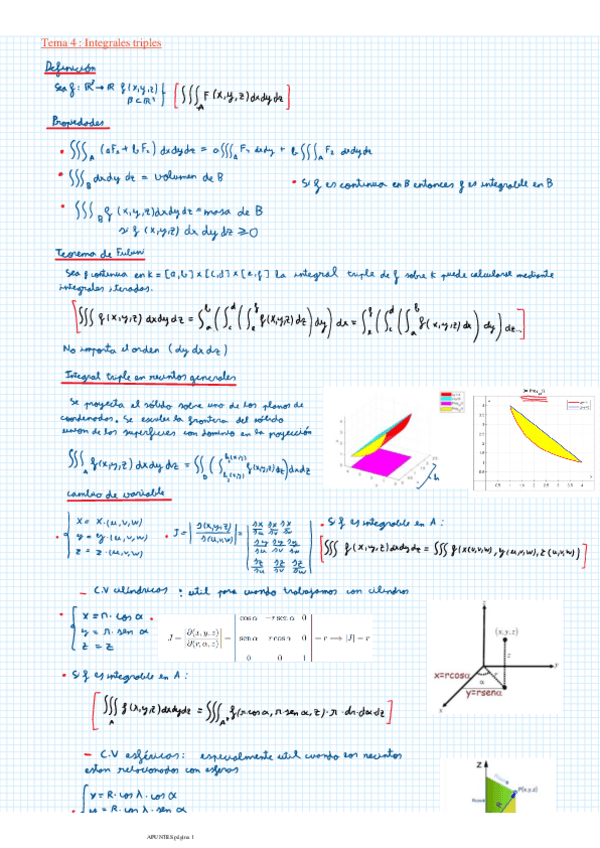 Tema 4 : Integrales triples
Definición
Sea f: ℝ³ → ℝ f(x,y,z)
B ⊂ ℝ³
[∭_A F(x,y,z) dxdydz]
Propiedades
• ∭_A (aF₁ + bF₂) dxdydz = a∭_A F₁ dxdy + b∭_A F₂ dxdydz
• ∭_B dxdydz = volumen de B
• Si f es continua en B entonces f es integrable en B
• ∭_B f(x,y,z)dxdydz = masa de B
si f(x,y,z) dxdydz ≥ 0
Teorema de Fubini
Sea f continua en k = [a,b] x [c,d] x [e,f] la integral triple de f sobre k puede calcularse mediante
integrales iteradas.
[∭ f(x,y,z) dxdydz = ∫_a^b (∫_c^d (∫_e^f f(x,y,z)dz) dy) dx = ∫_e^f (∫_c^d (∫_a^b f(x,y,z)dx) dy) dz]
No importa el orden (dydxdz)
Integral triple en recintos generales
Se proyecta el sólido sobre uno de los planos de
coordenados. Se escribe la frontera del sólido
unión de las superficies con dominio en la proyección
cambio de variable
• x = x·(u,v,w)
y = y·(u,v,w)
z = z·(u,v,w)
• J = |∂(x,y,z)/∂(u,v,w)| = |∂x/∂u ∂x/∂v ∂x/∂w|
|∂y/∂u ∂y/∂v ∂y/∂w|
|∂z/∂u ∂z/∂v ∂z/∂w|
• Si f es integrable en A :
[∭ f(x,y,z)dxdydz = ∭ f(x(u,v,w), y(u,v,w), z(u,v,w))]
– C.V cilíndricos : útil para cuando trabajamos con cilindros
• x = r · cos α
y = r · sen α
z = z
J = |∂(x,y,z)/∂(r,α,z)| = |cos α −r sen α 0|
|sen α r cos α 0| = r ⟹ |J| = r
|0 0 1|
(x,y,z)
z
x=rcosα
α
r
y=rsenα
y
x
• Si f es integrable en A :
[∭_A f(x,y,z)dxdydz = ∭_A* f(r cos α, r sen α, z) · r · dr·dα·dz]
– C.V esféricos: especialmente útil cuando los recintos
estan relacionados con esferas
x = R · cos λ · cos α
y = R · cos λ · sen α
Z
P(x,y,z)
R
APUNTES página 1